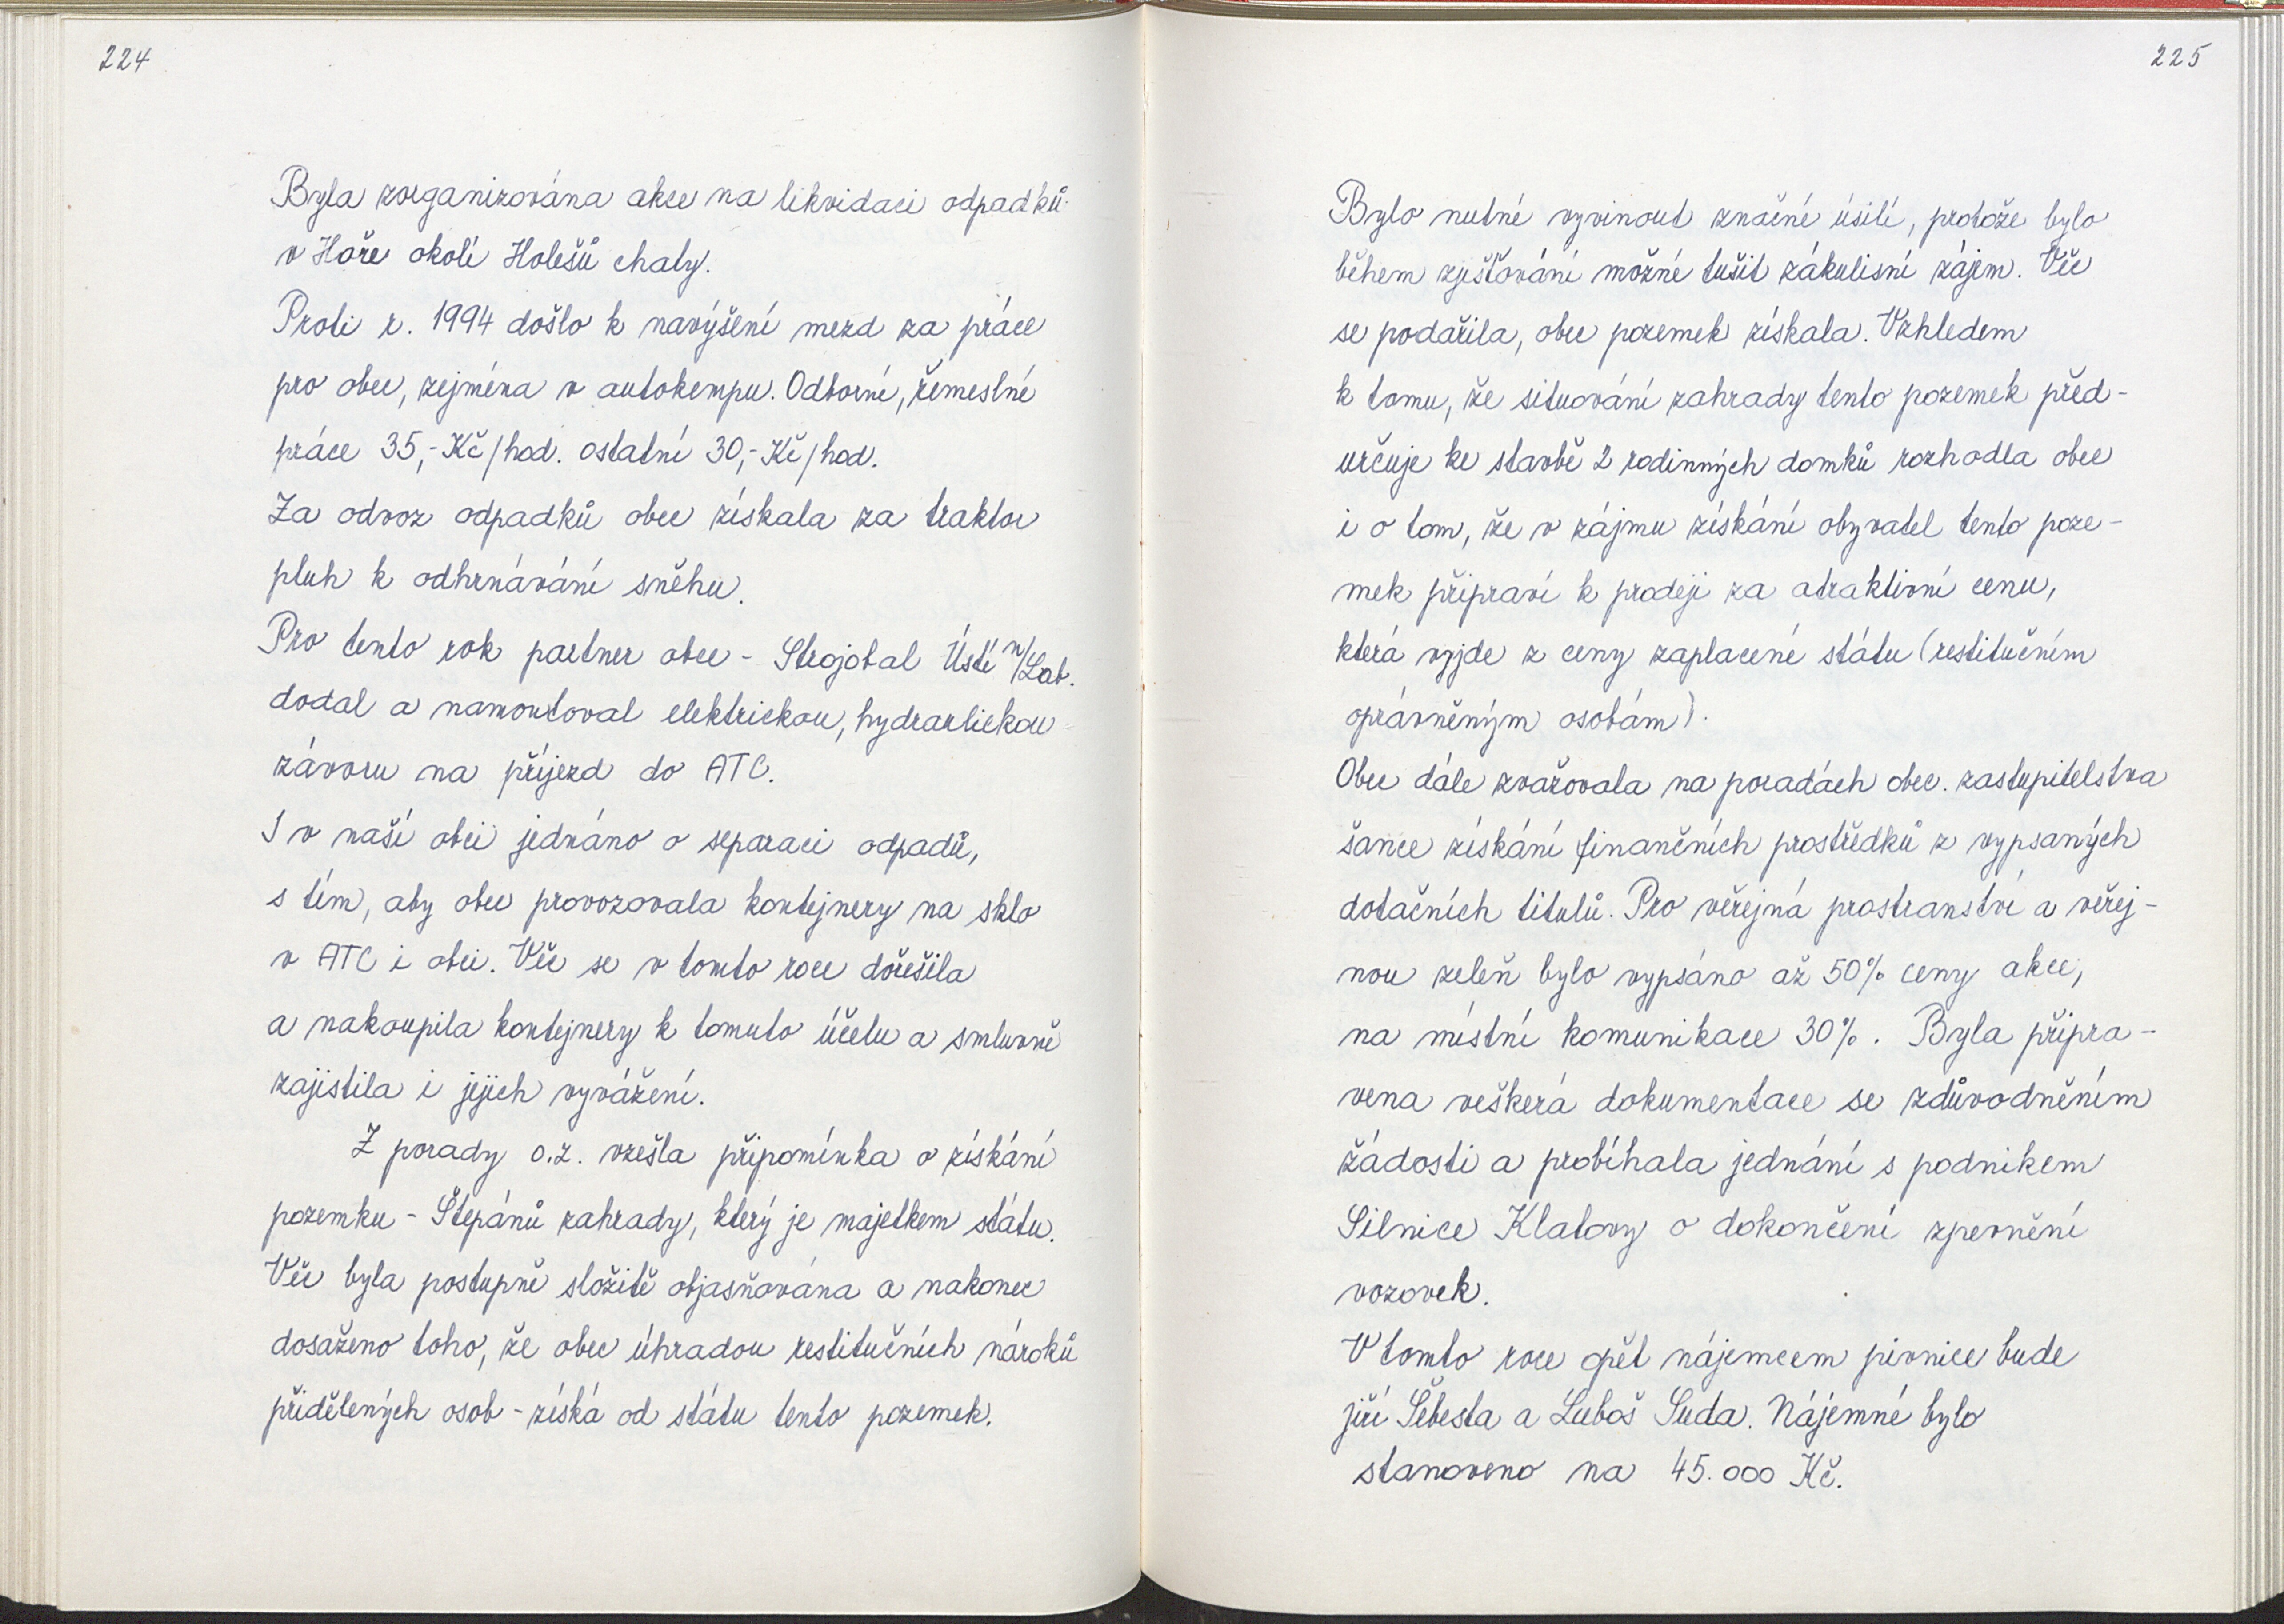 224
Byla zorganizována akce na likvidaci odpadků
v Hoře okolí Holešů chaty.
Proti r. 1994 došlo k navýšení mezd za práce
pro obec, zejména v autokempu. Odborné, řemeslné
práce 35,- Kč/hod. ostatní 30,- Kč/hod.
Za odvoz odpadků obec získala za traktor
pluh k odhrnávání sněhu.
Pro tento rok partner obce - Strojobal Ústí n/Lab.
dodal a namontoval elektrickou, hydraulickou
závoru na příjezd do ATC.
I v naší obci jednáno o separaci odpadů,
s tím, aby obec provozovala kontejnery na sklo
v ATC i obci. Věc se v tomto roce dořešila
a nakoupila kontejnery k tomuto účelu a smluvně
zajistila i jejich vyvážení.
Z porady o.z. vzešla připomínka o získání
pozemku - Štěpánů zahrady, který je majetkem státu.
Věc byla postupně složitě objasňována a nakonec
dosaženo toho, že obec úhradou restitučních nároků
přidělených osob - získá od státu tento pozemek.
225
Bylo nutné vyvinout značné úsilí, protože bylo
během zjišťování možné tušit zákulisní zájem. Věc
se podařila, obec pozemek získala. Vzhledem
k tomu, že situování zahrady tento pozemek před-
určuje ke stavbě 2 rodinných domků rozhodla obec
i o tom, že v zájmu získání obyvatel tento poze-
mek připraví k prodeji za atraktivní cenu,
která vyjde z ceny zaplacené státu (restitučním
oprávněným osobám).
Obec dále zvažovala na poradách obec. zastupitelstva
šance získání finančních prostředků z vypsaných
dotačních titulů. Pro veřejná prostranství a veřej-
nou zeleň bylo vypsáno až 50% ceny akce,
na místní komunikace 30%. Byla připra-
vena veškerá dokumentace se zdůvodněním
žádosti a probíhala jednání s podnikem
Silnice Klatovy o dokončení zpevnění
vozovek.
V tomto roce opět nájemcem pivnice bude
jiří Šebesta a Luboš Suda. Nájemné bylo
stanoveno na 45.000 Kč.